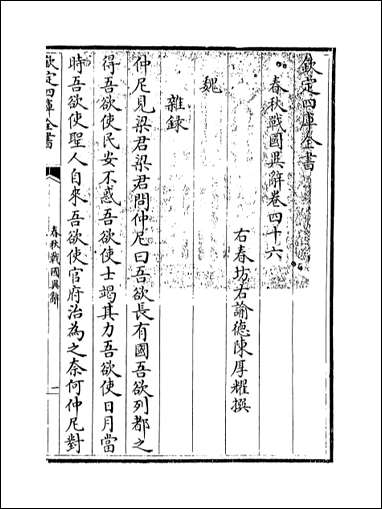 欽定四庫全書
春秋戰國異辭卷四十六
右春坊右諭德陳厚耀撰
魏
雜錄
仲尼見梁君梁君問仲尼曰吾欲長有國吾欲列都之
得吾欲使民安不惑吾欲使士竭其力吾欲使日月當
時吾欲使聖人自來吾欲使官府治為之奈何仲尼對
欽定四庫全書
春秋戰國異辭
一